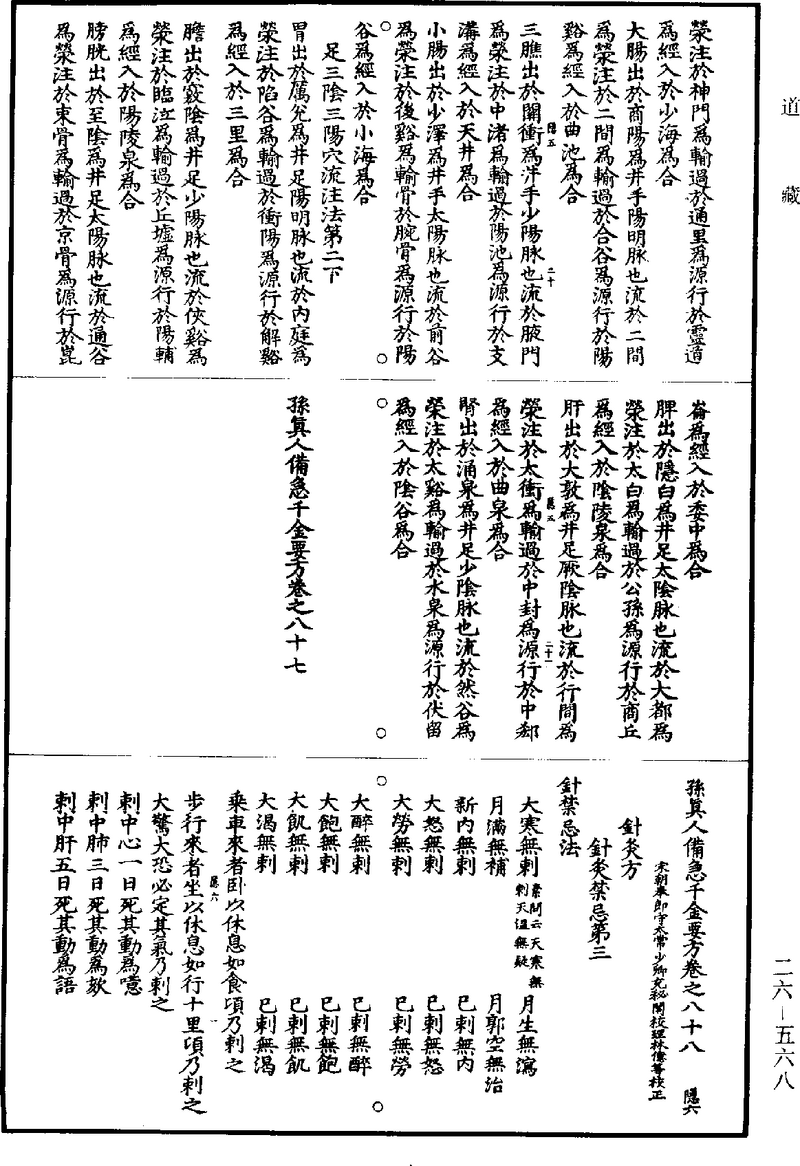 道藏
滎注於神門爲輸過於通里爲源行於靈道
爲經入於少海爲合
大腸出於商陽爲井手陽明脉也流於二間
爲滎注於三間爲輸過於合谷爲源行於陽
谿爲經入於曲池爲合
隱五
二十
三膲出於關衝爲井手少陽脉也流於腋門
爲滎注於中渚爲輸過於陽池爲源行於支
溝爲經入於天井爲合
小腸出於少澤爲井手太陽脉也流於前谷
爲滎注於後谿爲輸過於腕骨爲源行於陽
谷爲經入於小海爲合
足三陰三陽穴流注法第二下
胃出於厲兌爲井足陽明脉也流於内庭爲
滎注於陷谷爲輸過於衝陽爲源行於解谿
爲經入於三里爲合
膽出於竅陰爲井足少陽脉也流於俠谿爲
滎注於臨泣爲輸過於丘墟爲源行於陽輔
爲經入於陽陵泉爲合
膀胱出於至陰爲井足太陽脉也流於通谷
爲滎注於束骨爲輸過於京骨爲源行於崑
崙爲經入於委中爲合
脾出於隱白爲井足太陰脉也流於大都爲
滎注於太白爲輸過於公孫爲源行於商丘
爲經入於陰陵泉爲合
肝出於大敦爲井足厥陰脉也流於行間爲
隱五
二十一
滎注於太衝爲輸過於中封爲源行於中郄
爲經入於曲泉爲合
腎出於涌泉爲井足少陰脉也流於然谷爲
滎注於太谿爲輸過於水泉爲源行於伏留
爲經入於陰谷爲合
孫眞人備急千金要方卷之八十七
孫眞人備急千金要方卷之八十八 隱六
宋朝奉郎守太常少卿充祕閣校理林億等校正
針灸方
針灸禁忌第三
針禁忌法
大寒無刺 素問云天寒無刺天温無疑 月生無瀉
月滿無補 月郭空無治
新内無刺 已刺無内
大怒無刺 已刺無怒
大勞無刺 已刺無勞
大醉無刺 已刺無醉
大飽無刺 已刺無飽
大飢無刺 已刺無飢
大渴無刺 已刺無渴
乘車來者卧以休息如食頃乃刺之
隱六
一
步行來者坐以休息如行十里頃乃刺之
大驚大恐必定其氣乃刺之
刺中心一日死其動爲噫
刺中肺三日死其動爲欬
刺中肝五日死其動爲語
二六—五六八